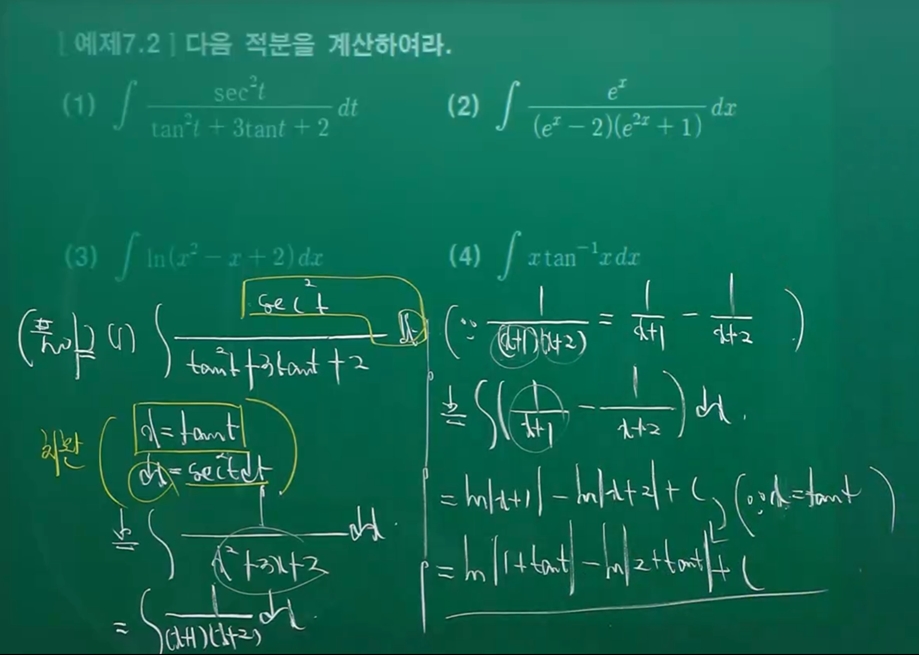 [예제7.2] 다음 적분을 계산하여라.
(1) ∫ sec²t / (tan²t + 3tant + 2) dt
(2) ∫ eˣ / ((eˣ − 2)(e²ˣ + 1)) dx
(3) ∫ ln(x² − x + 2)dx
(4) ∫ x tan⁻¹x dx
(풀이) (1) ∫ sec²t / (tan²t + 3tant + 2) dt
치환 ( x = tant
dx = sec²t dt )
≐ ∫ 1 / (x² + 3x + 2) dx.
= ∫ 1 / ((x+1)(x+2)) dx.
(∵ 1 / ((x+1)(x+2)) = 1/(x+1) − 1/(x+2) )
≐ ∫ ( 1/(x+1) − 1/(x+2) ) dx.
= ln|x+1| − ln|x+2| + C, (∵ x = tant )
= ln|1+tant| − ln|2+tant| + C